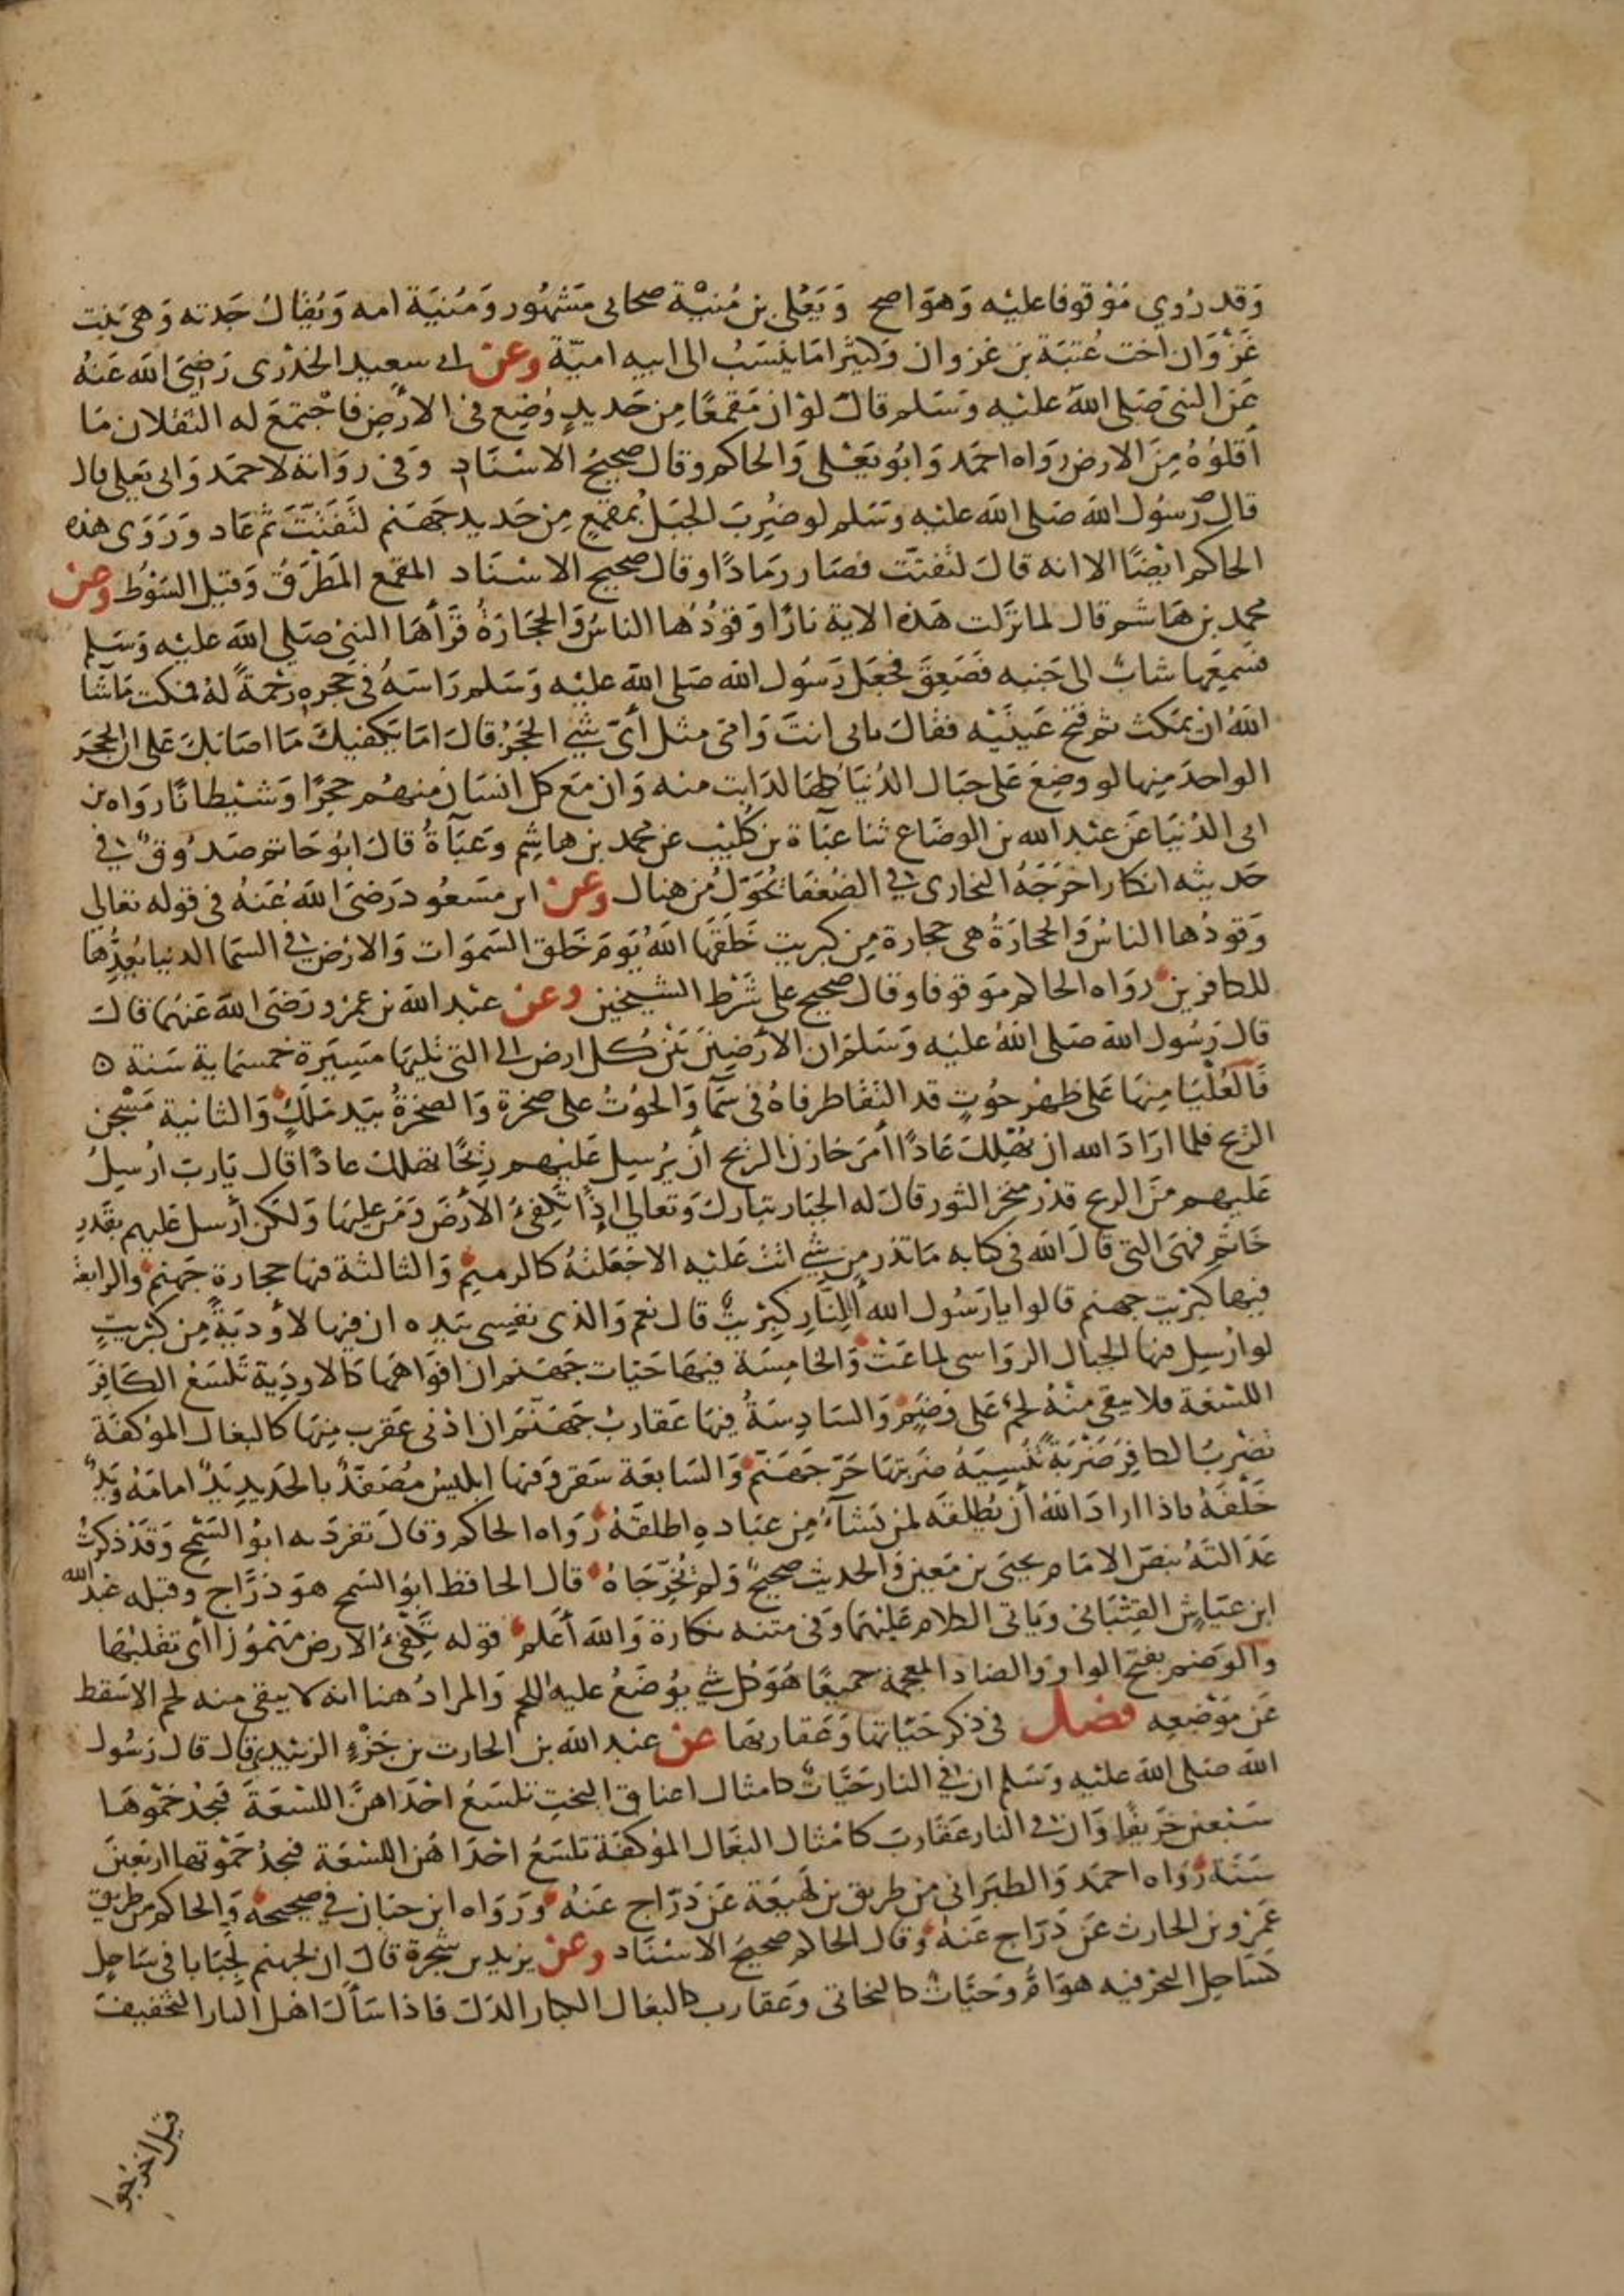 وَقد رُوي مَوْقوفا عليْه وَهوَ اصح وَيَعْلى بن مُنيْة صحابى مَشهُور وَمُنيَة امه وَيُقالُ جَدته وَهى بنت
غَزْوَان اخت عُتبَة بن غزوان وَكثيرًا مَا ينسَبُ الى ابيه اميّة وعن ابى سعيد الخدْرى رَضىَ الله عَنهُ
عَن النبى صَلى اللهُ عليْه وَسَلم قالَ لوْ ان مَقمعًا مِن حَديدٍ وُضِع فى الارْضِ فاجْتمَعَ له الثقلان مَا
اَقلوُهُ مِنَ الارض رَوَاه احمَد وَابُو يَعْلى وَالحاكم وقالَ صحيحُ الاسْنَادِ وَفى روَاية لاحمَد وَابى يَعلى قال
قال رَسُول الله صَلى الله عليْه وسَلم لو ضُرِبَ الجبَلُ بمقمَعٍ مِن حَديد جَهَنم لتَفتتَ ثم عَاد وَرَوَى هذه
الحاكم ايْضًا الا انه قالَ لتفتتَ فصَار رمَادًا وقالَ صحيح الاسْناد المقمع المَطْرَقُ وَقيلَ السَوْط وعن
محمد بن هَاشم قال لما نزَلت هَذه الاية نارًا وَقوُدُها الناسُ وَالحجَارَةُ قرَأهَا النبى صَلى الله عليْه وَسَلم
فسَمِعَها شابٌ الى جَنبه فصَعِقَ فجعَلَ رَسُول الله صَلى الله عليْه وَسَلم رَاسَهُ فى حجره رَحْمةً لهُ فمكث مَا شَا
اللهُ ان يمكث ثم فتح عَينَيْه فقالَ بابى انتَ وَامى مثل أىّ شَي الحجَرُ قالَ امَا يَكفيكَ مَا اصَابكَ عَلى ان الحجَر
الواحدَ مِنها لو وضِعَ عَلى جبَال الدُنيَا كلهَا لذابت منه وَان مَع كل انسَان منهُم حجرًا وَشيْطانًا رواه بن
ابى الدُنيَا عَن عبْد الله بن الوضاع ثنا عبَاة بن كليْب عن محمد بن هاشِم وَعَبَاَةُ قالَ ابُو حَاتم صَدُوق فى
حَديثه انكار اخرَجَهُ البخارى فى الضُعَفا يحوّل من هنال وعن ابن مسَعُود رَضىَ اللهُ عَنهُ فى قوله تعالى
وَقودُها الناسُ وَالحجَارَةُ هى حجارة مِن كبريت خَلقها اللهُ يَومَ خَلق السَموَات وَالارْض فى السَمَا الدنيا يُعِدُّها
للكافرين روَاه الحاكم مَوقوفا وقالَ صحيح على شَرْط الشيخين وعن عبْد الله بن عَمرو رَضىَ الله عَنهُمَا قالَ
قال رَسُول الله صَلى اللهُ عليْه وَسَلم ان الارَضِينَ بَيْن كل ارض الى التى تليهَا مَسِيَرة خمسمَاية سَنة ه
فَالعُلْيَا مِنهَا عَلى ظهْر حُوْتٍ قد التقَا طرفاهُ فى سَمَآ وَالحوُتُ على صَخرَة وَالصخرَةُ بيَد مَلكٍ وَالثانية مَسْجن
الريح فلما ارَادَ الله ان يهْلِكَ عَادًا أمَرَ خازن الريح ان يُرسِل عَليْهم رِيْحًا تهلك عادًا قال يَاربّ ارُسِلُ
عَليهم مِنَ الريح قدْر منخر الثور قالَ له الجبَار تبَارك وَتعالى إذًا تُكفِئُ الأرْضَ وَمَن عليهَا وَلكن أرسل عَليهم بقدْرِ
خَاتم فهىَ التى قالَ الله فى كتابه مَا تذر مِن شَي اتتْ عَليْه الا جَعَلتْهُ كالرميم وَالثالثة فيها حجارة جَهنم والرابعة
فيها كبريت جهنم قالوا يا رَسُول الله أَللنّارِ كبرْيتٌ قال نعم وَالذى نفسِى بَيده ان فيها لأوْديَةٌ مِن كبْريتٍ
لو ارُسِل فيها الجبال الروَاسى لماعَتْ وَالخامِسَة فيهَا حَيّات جَهَنم ان افوَاهَهَا كَالاودِيَة تَلسَعُ الكَافِرَ
اللسْعَة فلا يبقى منهُ لحمٌ عَلى وَضَمٍ وَالسَادِسَةُ فِيهَا عَقاربُ جَهَنّمَ ان ادْنى عَقرب مِنهَا كالبغال الموُكفَة
تضْربُ الكافِرَ ضَرْبَةً تُنسِيهُ ضربتهَا حَرّ جَهَنَم وَالسَابعَة سَقر وفيها ابليسُ مُصَفّدٌ بالحَديدِ يَدٌ امامَهُ وَيَدٌ
خَلْفَهُ فاذا ارادَ اللهُ أن يُطلقَه لمن يَشاَءُ مِن عبَادهِ اطلقَهُ رَوَاه الحاكم وقالَ تفرَدَ به ابوُ السَمْح وَقدْ ذكرتُ
عَدَالتَهُ بنصّ الامَام يحيَى بن مَعين وَالحديث صحيحٌ وَلم يُخرِّجَاهُ قال الحافظ ابوُ السَمح هوَ دَرَّاج وقبله عَبْد الله
ابن عيَاشٍ القِتْبَانى ويَاتى الكلام عَليْهمَا وَفى متنه نكارة وَالله أعْلم قوله تُكفِئُ الارض مَهْمُوْزا أى تقلبُهَا
وَالوَضم بفتح الواو وَالضاد المعجمة جميعًا هُوَ كل شَي يوُضَعُ عليه اللحم وَالمرادُ هنا انه لا يبقى منه لحم الا سَقط
عَن مَوْضعِه فصل فى ذكر حَيّاتها وَعَقاربهَا عن عبْد الله بن الحارث بن جَزْءٍ الزبَيْدى قال قالَ رَسُول
الله صَلى الله عليْه وَسَلم ان فى النار حَيّاتٌ كامثال اعناق البخت تلسَعُ احْدَاهنَّ اللسْعَةَ فيَجدُ حَمْوَهَا
سَبعين خَريفًا وَان فى النار عَقاربَ كامْثال البغَال الموُكفة تلسَعُ احْدَاهُن اللسْعَة فيجدُ حَمْوَتها ارْبعينَ
سَنَة رَوَاه احمَد وَالطبَرانى من طريق بن لَهيعَة عَن دَرّاج عَنهُ وَرَوَاه ابن حبَان فى صحيحه وَالحاكم من طريق
عَمرو بن الحارث عَن دَرّاج عَنهُ وقال الحاكم صحيحُ الاسْنَاد وعن يزيد بن شجَرة قالَ ان لجهنم لجبَابا فى سَاحِلٍ
كسَاحل البَحر فيه هوَامٌّ وَحيَّاتٌ كالبخاتى وَعَقارب كالبغال الكبار الدلم فاذا سَألَ اهْل النار التخفيفَ
قيل اخرجوا